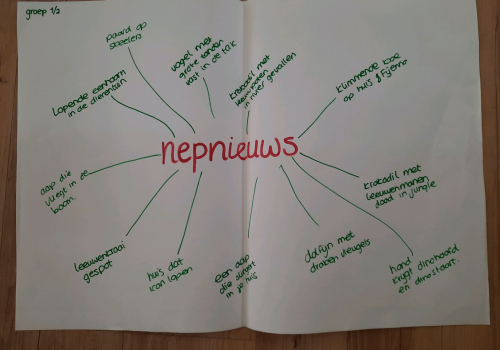 groep 1/2
paard op
speelers
vogel met
grote tanden
vast in de tak
krokodil met
leeuwmanen
in rivier gevallen
klimmende koe
op huis
Lopende eenhoorn
in de dierentuin
nepnieuws
aap die
vliegt in ee
boom.
krokodil met
leeuwenmanen
dood in jungle
leeuwenkraai
gespot
huis dat
kan lopen
een aap
die slingert
in je huis
dolfijn met
draken vleugels
hond
krijgt dinohoofd
en dinostaart.